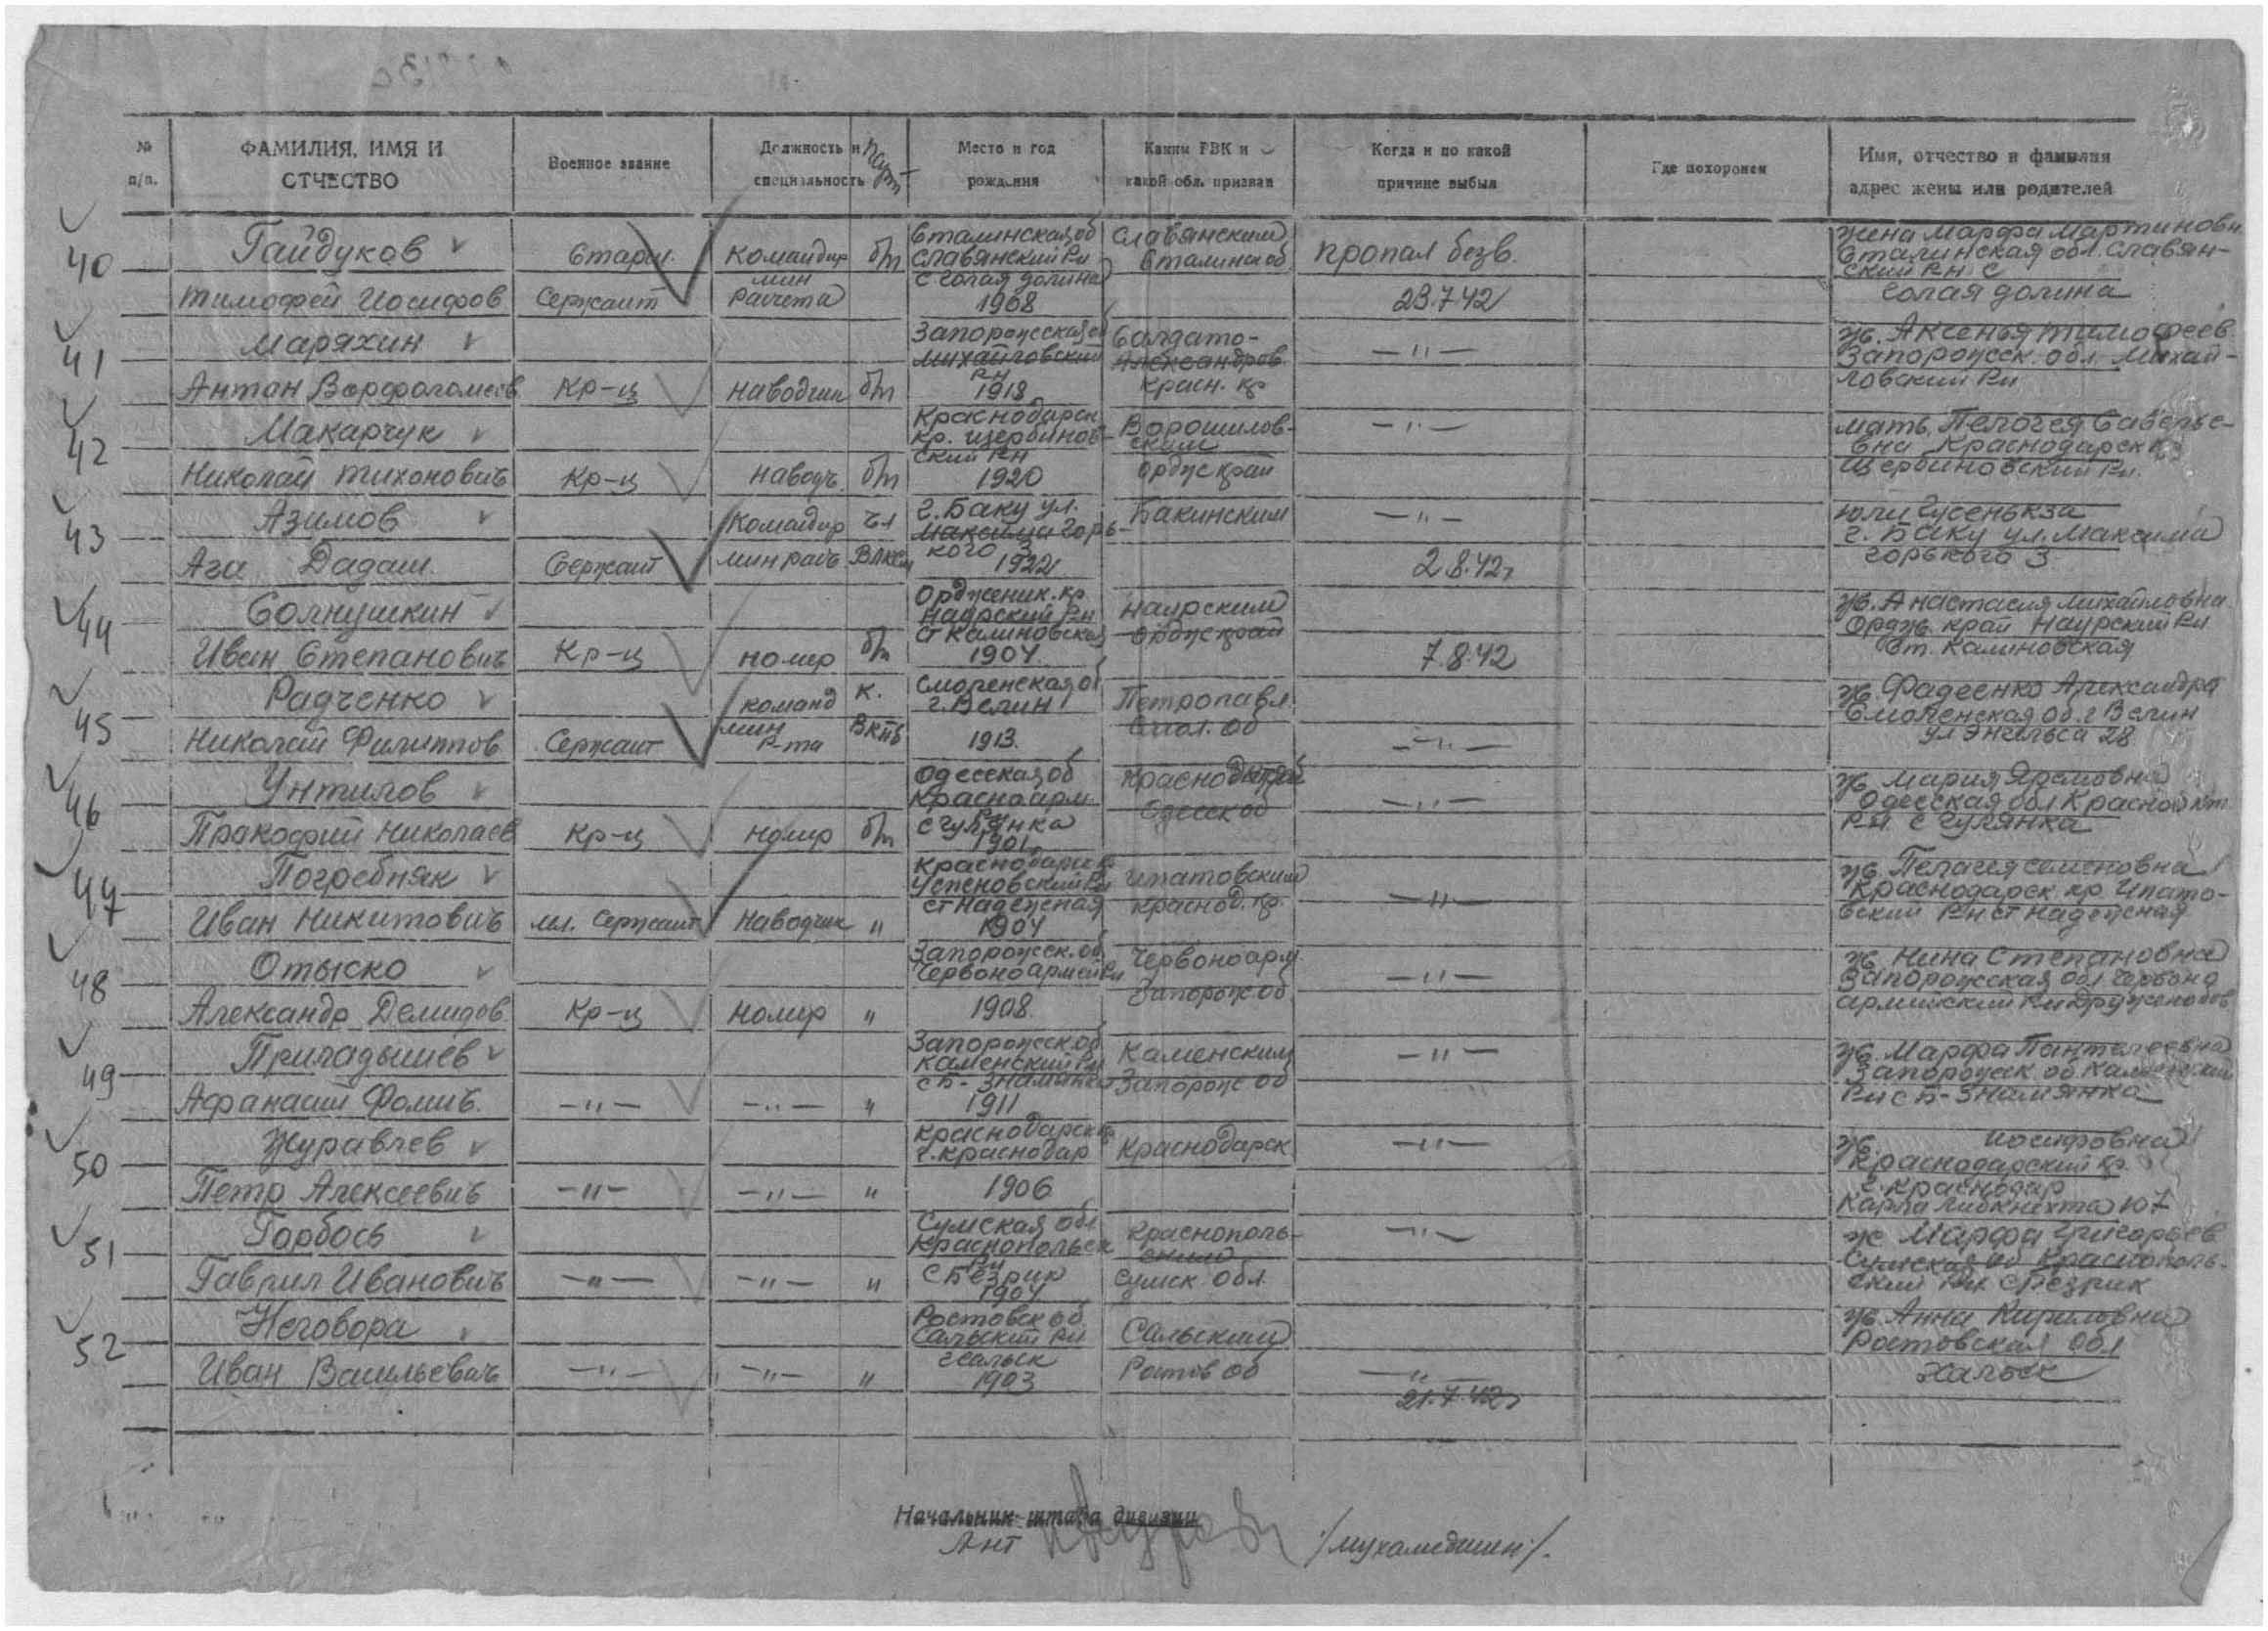 № п/п.
ФАМИЛИЯ, ИМЯ И ОТЧЕСТВО
Военное звание
Должность и специальность
парт
Место и год рождения
Каким РВК и какой обл. призван
Когда и по какой причине выбыл
Где похоронен
Имя, отчество и фамилия адрес жены или родителей
40
Гайдуков
Тимофей Иосифов
Старш. Сержант
Командир мин расчета
б/п
Сталинская об
Славянский Рн
с Голая долина
1908
Славянским
Сталинск об
пропал безв.
23.7.42
жена Марфа Мартиновн
Сталинская обл. Славян-
ский Рн с
Голая долина
41
Маряхин
Антон Варфоломеев
Кр-ц
Наводчик
б/п
Запорожская об
Михайловский
Рн
1913
Солдато-
Александров
Красн. кр
—"—
ж. Аксенья Тимофеев
Запорожск. обл. Михай-
ловский Рн
42
Макарчук
Николай Тихонович
Кр-ц
Наводч.
б/п
Краснодарск
кр. Щербинов-
ский Рн
1920
Ворошилов-
ским
Ордж край
—"—
мать Пелогея Савелье-
вна Краснодарск
Щербиновский Рн.
43
Азимов
Ага Дадаш.
Сержант
Командир
мин расч
чл
Влксм
г. Баку ул.
Максима Горь-
кого 3
1922
Бакинским
—"—
2.8.42
г. Баку ул. Максима
Горького 3
44
Солнушкин
Иван Степанович
Кр-ц
номер
б/п
Орджоник. кр.
Наурский Рн
ст Калиновская
1904.
Наурским
Ордж край
7.8.42
ж. Анастасия Михайловна
Ордж край Наурский Рн
ст. Калиновская
45
Радченко
Николай Филиппов
Сержант
команд
мин
Р-та
к.
Вкпб
Смоленская об
г. Велин
1913.
Петропавл.
Смол. об
—"—
ж. Фадеенко Александра
Смоленская об. г Велин
ул Энгельса 28
46
Унтилов
Прокофий Николаев
Кр-ц
номер
б/п
Одесская об
Красноарм
Рн
с Гулянка
1901
Одесск об
—"—
ж Мария
Одесская обл
Рн. с Гулянка
47
Погребняк
Иван Никитович
мл. Сержант
Наводчик
"
Краснодарск
ст Надежная
1904
Ипатовским
Краснод. кр.
—"—
ж. Пелагея Семеновна
Краснодарск кр. Ипато-
вский Рн ст Надежная
48
Отыско
Александр Демидов
Кр-ц
номер
"
Запорожск. об
Червоноармей Рн
1908.
Червоноарм
Запорож об
—"—
ж. Нина Степановна
Запорожская обл Червоно
армейский Рн
49
Приладышев
Афанасий Фомич.
—"—
—"—
"
Запорожск. об
Каменский Рн
с Б-Знаменка
1911
Каменским
Запорож об
—"—
ж. Марфа Пантелеевна
Запорожск об. Каменский
Рн с Б-Знамянка
50
Журавлев
Петр Алексеевич
—"—
—"—
"
Краснодарск кр
г. Краснодар
1906
Краснодарск
—"—
ж. Иосифовна
Краснодарский кр.
г. Краснодар
Карла Либкнехта 107
51
Горбось
Гаврил Иванович
—"—
—"—
"
Сумская обл
Краснопольск
Рн
с Безрик
1904
Краснополь-
ским
Сумск обл.
—"—
ж Марфа Григорьев
Сумская об Краснополь-
ский Рн с Безрик
52
Неговора
Иван Васильевич
—"—
—"—
"
Ростовск об
Сальский Рн
г Сальск
1903
Сальским
Ростов об
—"—
21.7.42
ж. Анна Кириловна
Ростовская обл
Начальник штаба дивизии
/мухамедшин/.